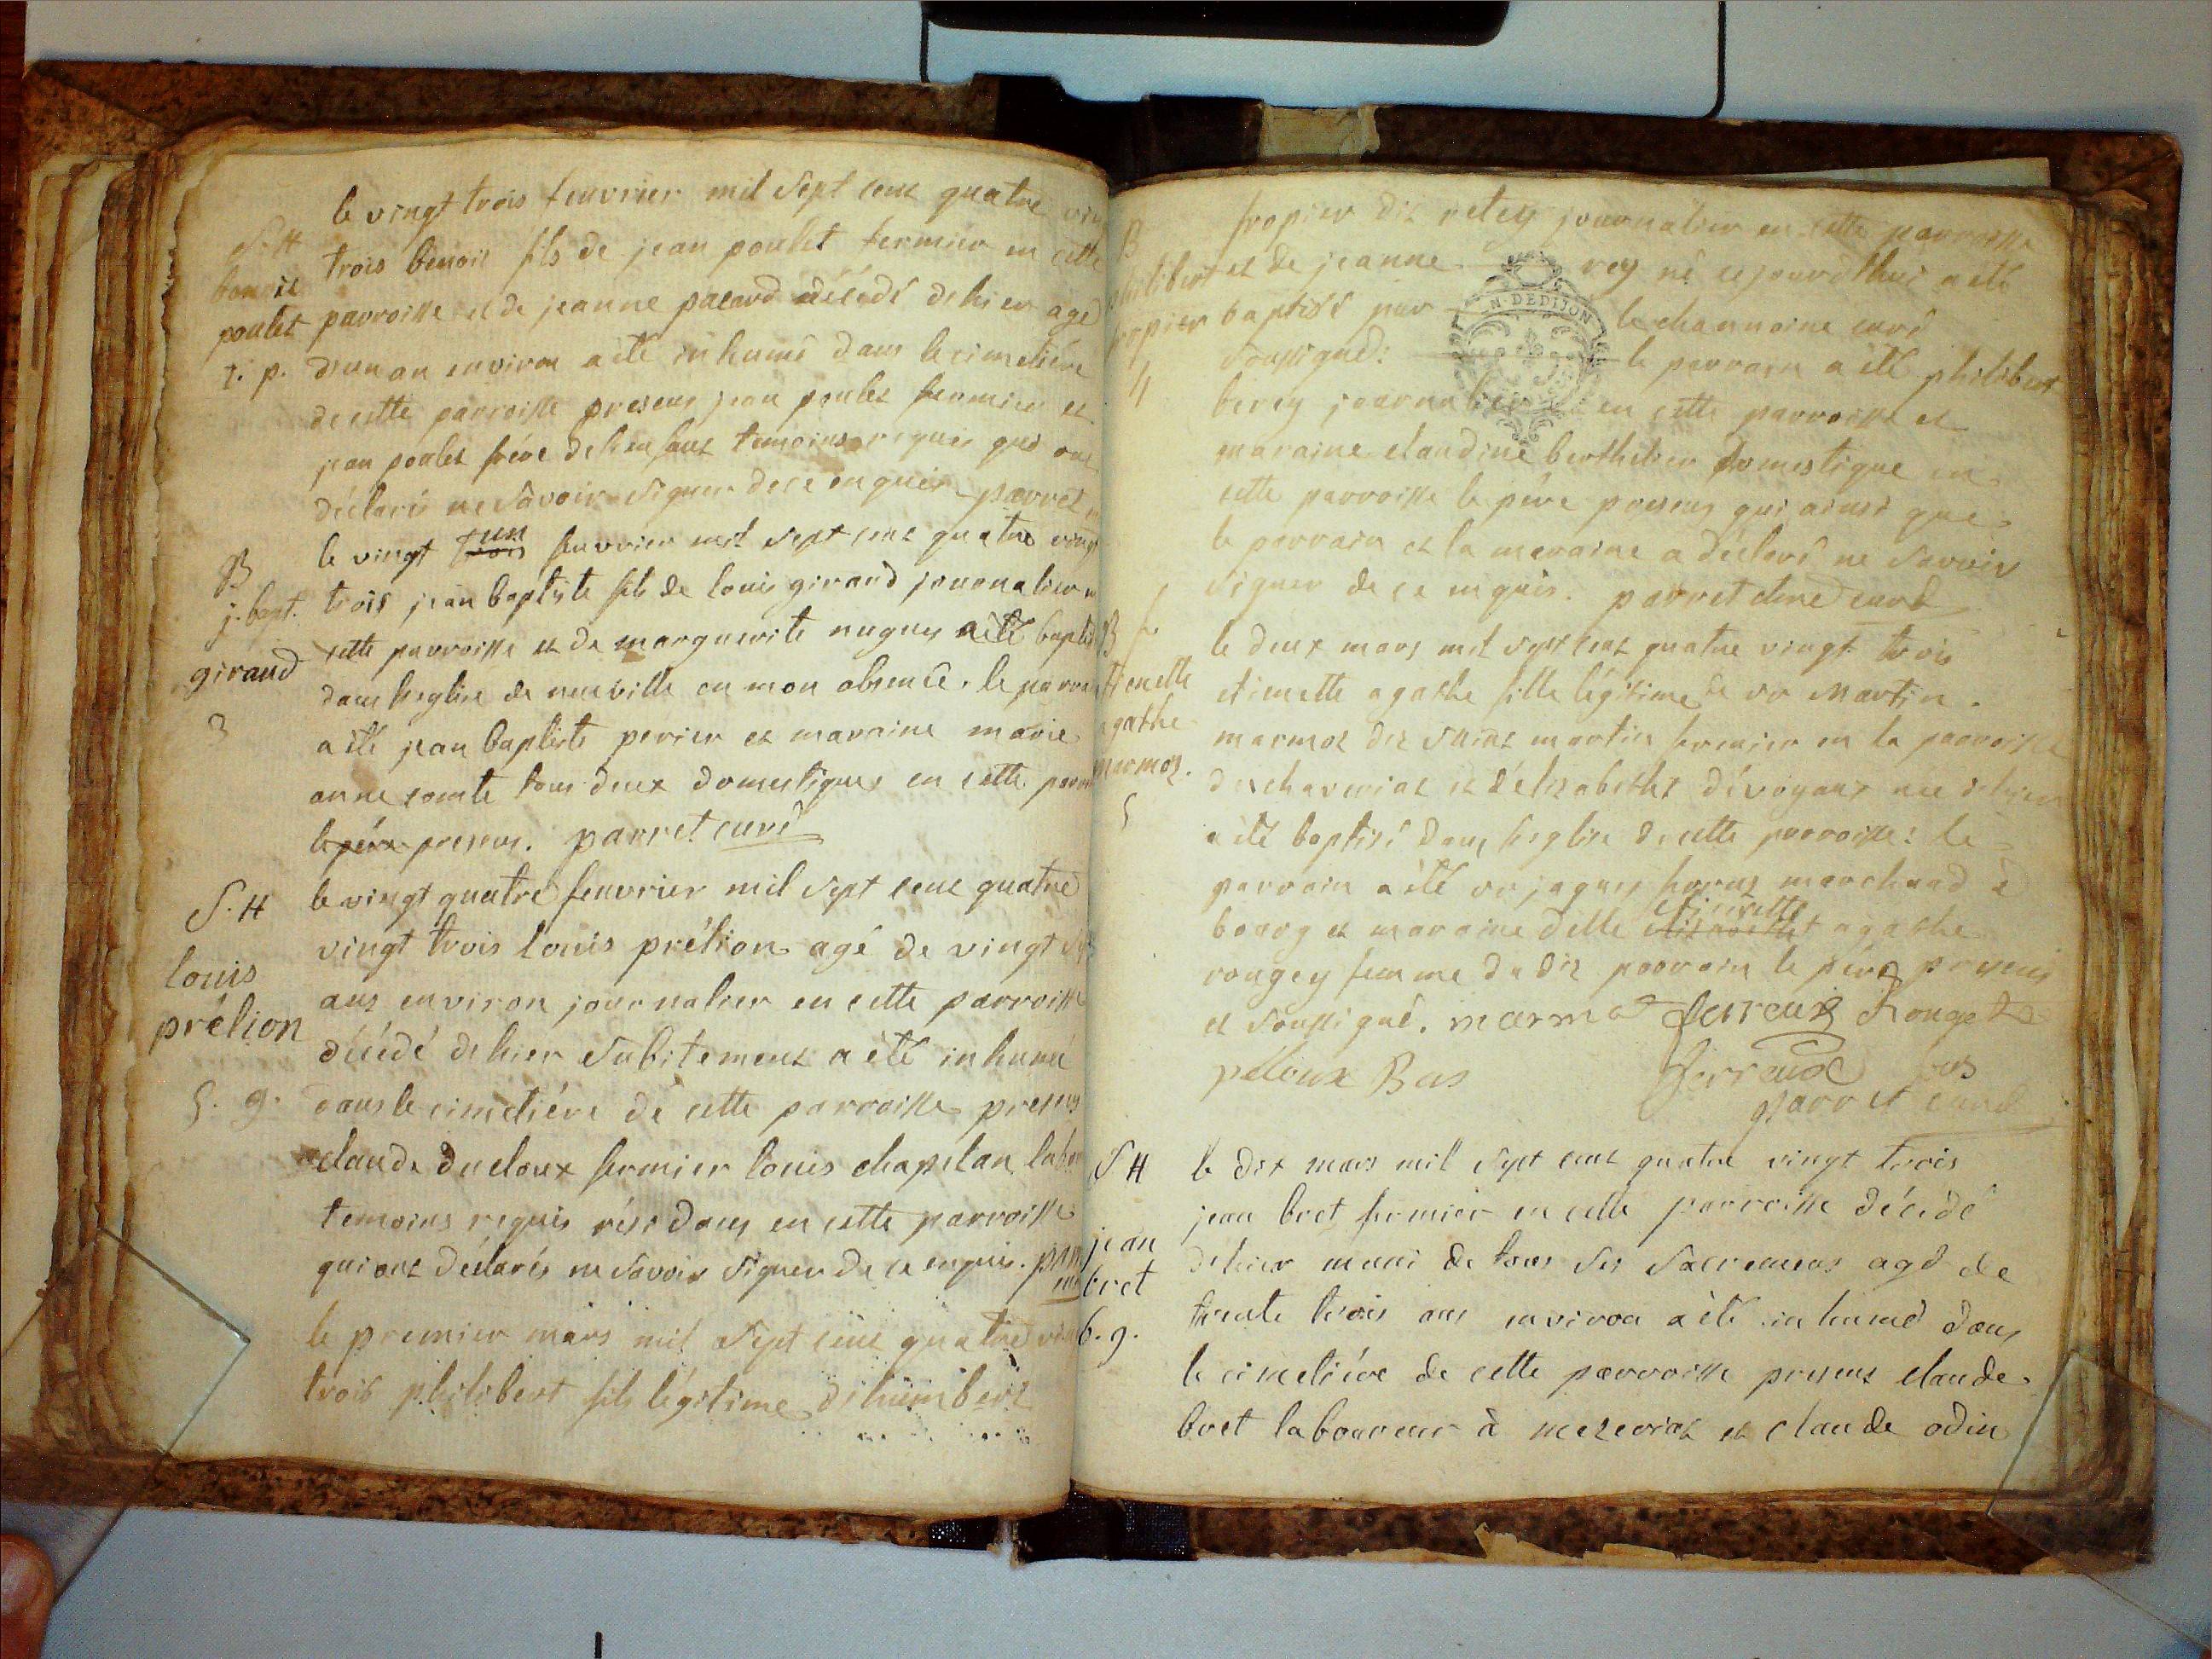 le vingt trois feuvrier mil sept cent quatre vin
S. H
benoit
poulet
7. p.
trois benoit fils de jean poulet fermier en cette
parroisse et de jeanne pacard décédé dehier agé
d'un an environ a été inhumé dans le cimetiére
de cette parroisse presens jean poulet fermier et
jean poulet frére de l'enfant temoins requis qui ont
déclarés ne sàvoir signer de ce enquis parret
B
j. bapt.
giraud
3
le vingt trois un feuvrier mil sept cent quatre vingt
trois jean baptiste fils de louis giraud journalier
cette parroisse et de marguerite nugues a été baptisé
dans l'eglise de neuville en mon absence. le parrain
a été jean baptiste perier et maraine marie
anne comte tous deux domestiques en cette parroi
le pére presens. parret curé
S. H
louis
prélion
5. g.
le vingt quatre feuvrier mil sept cent quatre
vingt trois louis prélion agé de vingt
ans environ journalier en cette parroisse
décédé dehier subitement a été inhumé
dans le cimetiére de cette parroisse presens
claude ducloux fermier louis chapelan
temoins requis résidans en cette parroisse
qui ont déclarés ne savoir signer de ce enquis.
le premier mars mil sept cent quatre
trois philibert fils légitime de humbert
B
philibert
fropier
4
fropier dit retey journalier en cette parroisse
et de jeanne rey né cejourd'hui a été
baptisé par le channoine curé
soussigné: le parrain a été philibert
N. DE DIJON
berey journalier en cette parroisse et
maraine claudine berthelier domestique en
cette parroisse le pére presens qui ainsi que
le parrain et la maraine a déclaré ne savoir
signer de ce enquis. parret curé
B
etienette
agathe
marmot.
5
le deux mars mil sept cent quatre vingt trois
etienette agathe fille légitime de sr martin
marmot dit saint martin fermier en la parroisse
de chaveriat et d'élisabeth dévoyant née dehier
a été baptisé dans l'eglise de cette parroisse: le
parrain a été sr jaques marchand à
bourg et maraine delle etienette agathe
rougey femme du dit parrain le pére presens
et soussigné. marmot ferraux Rouget
peloux Bas
parret curé
S H
jean
bret
6. g.
le dix mars mil sept cent quatre vingt trois
jean bret fermier en cette parroisse décédé
dehier muni de tous ses sacremens agé de
trente trois ans environ a été inhumé dans
le cimetiére de cette parroisse presens claude
bret laboureur à mezeriat et claude odin